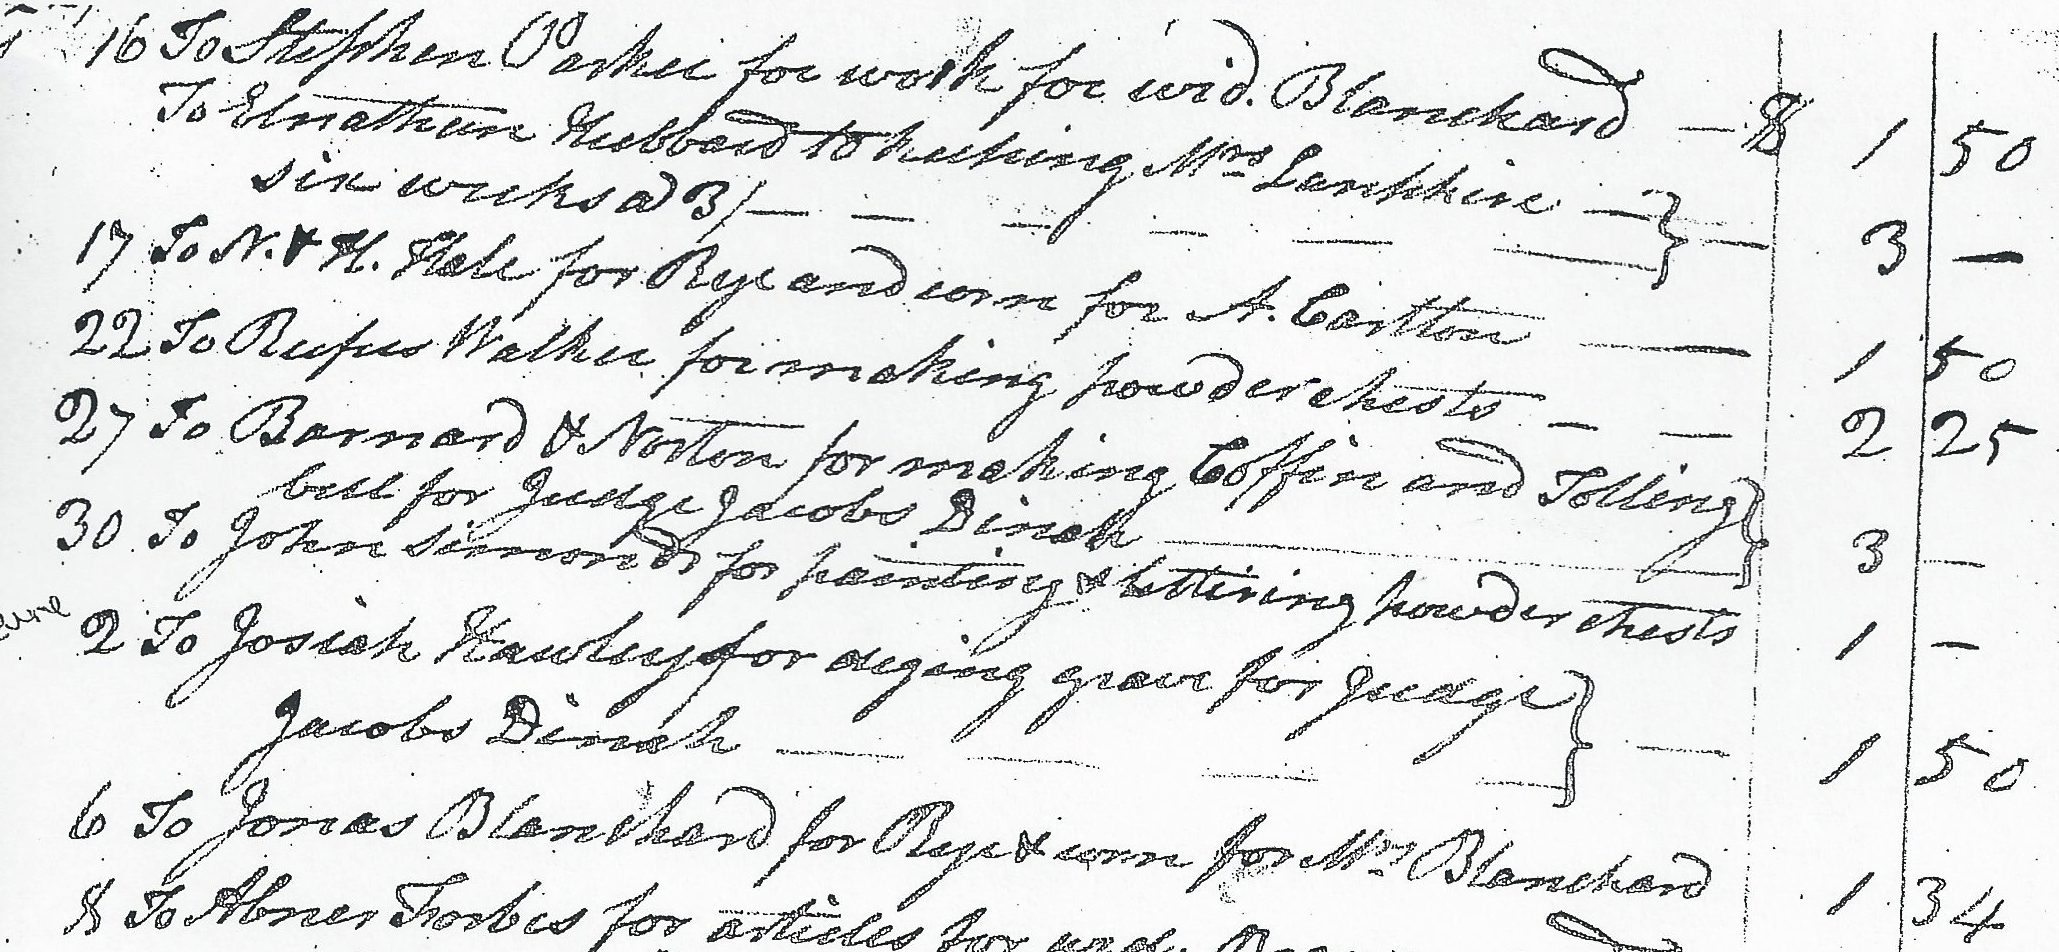 16 To Stephen Parker for work for wid. Blanchard — $ 1 50
To Elnathan Hubbard to keeping Mrs Lankkire —
six weeks @ 3/ — — — — — — } — 3 —
17 To N. & H. Hale for Rye and corn for A. Carlton — — 1 50
22 To Rufus Walker for making powder chests — — 2 25
27 To Barnard & Norton for making Coffin and Tolling
bell for Judge Jacobs Dinah — — } 3 —
30 To John Simonds for painting & lettering powder chests 1 —
June 2 To Josiah Hawley for diging grave for Judge
Jacobs Dinah — — — — } — 1 50
6 To Jonas Blanchard for Rye & corn for Mrs Blanchard 1 34
8 To Abner Forbes for articles for